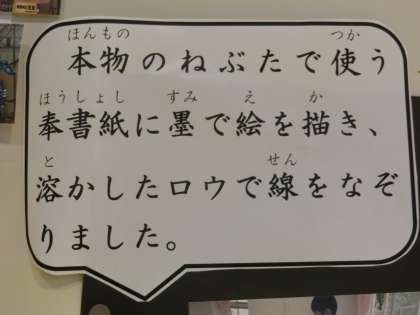 ほんもの つか
本物のねぶたで使う
ほうしょし すみ え か
奉書紙に墨で絵を描き、
と せん
溶かしたロウで線をなぞ
りました。